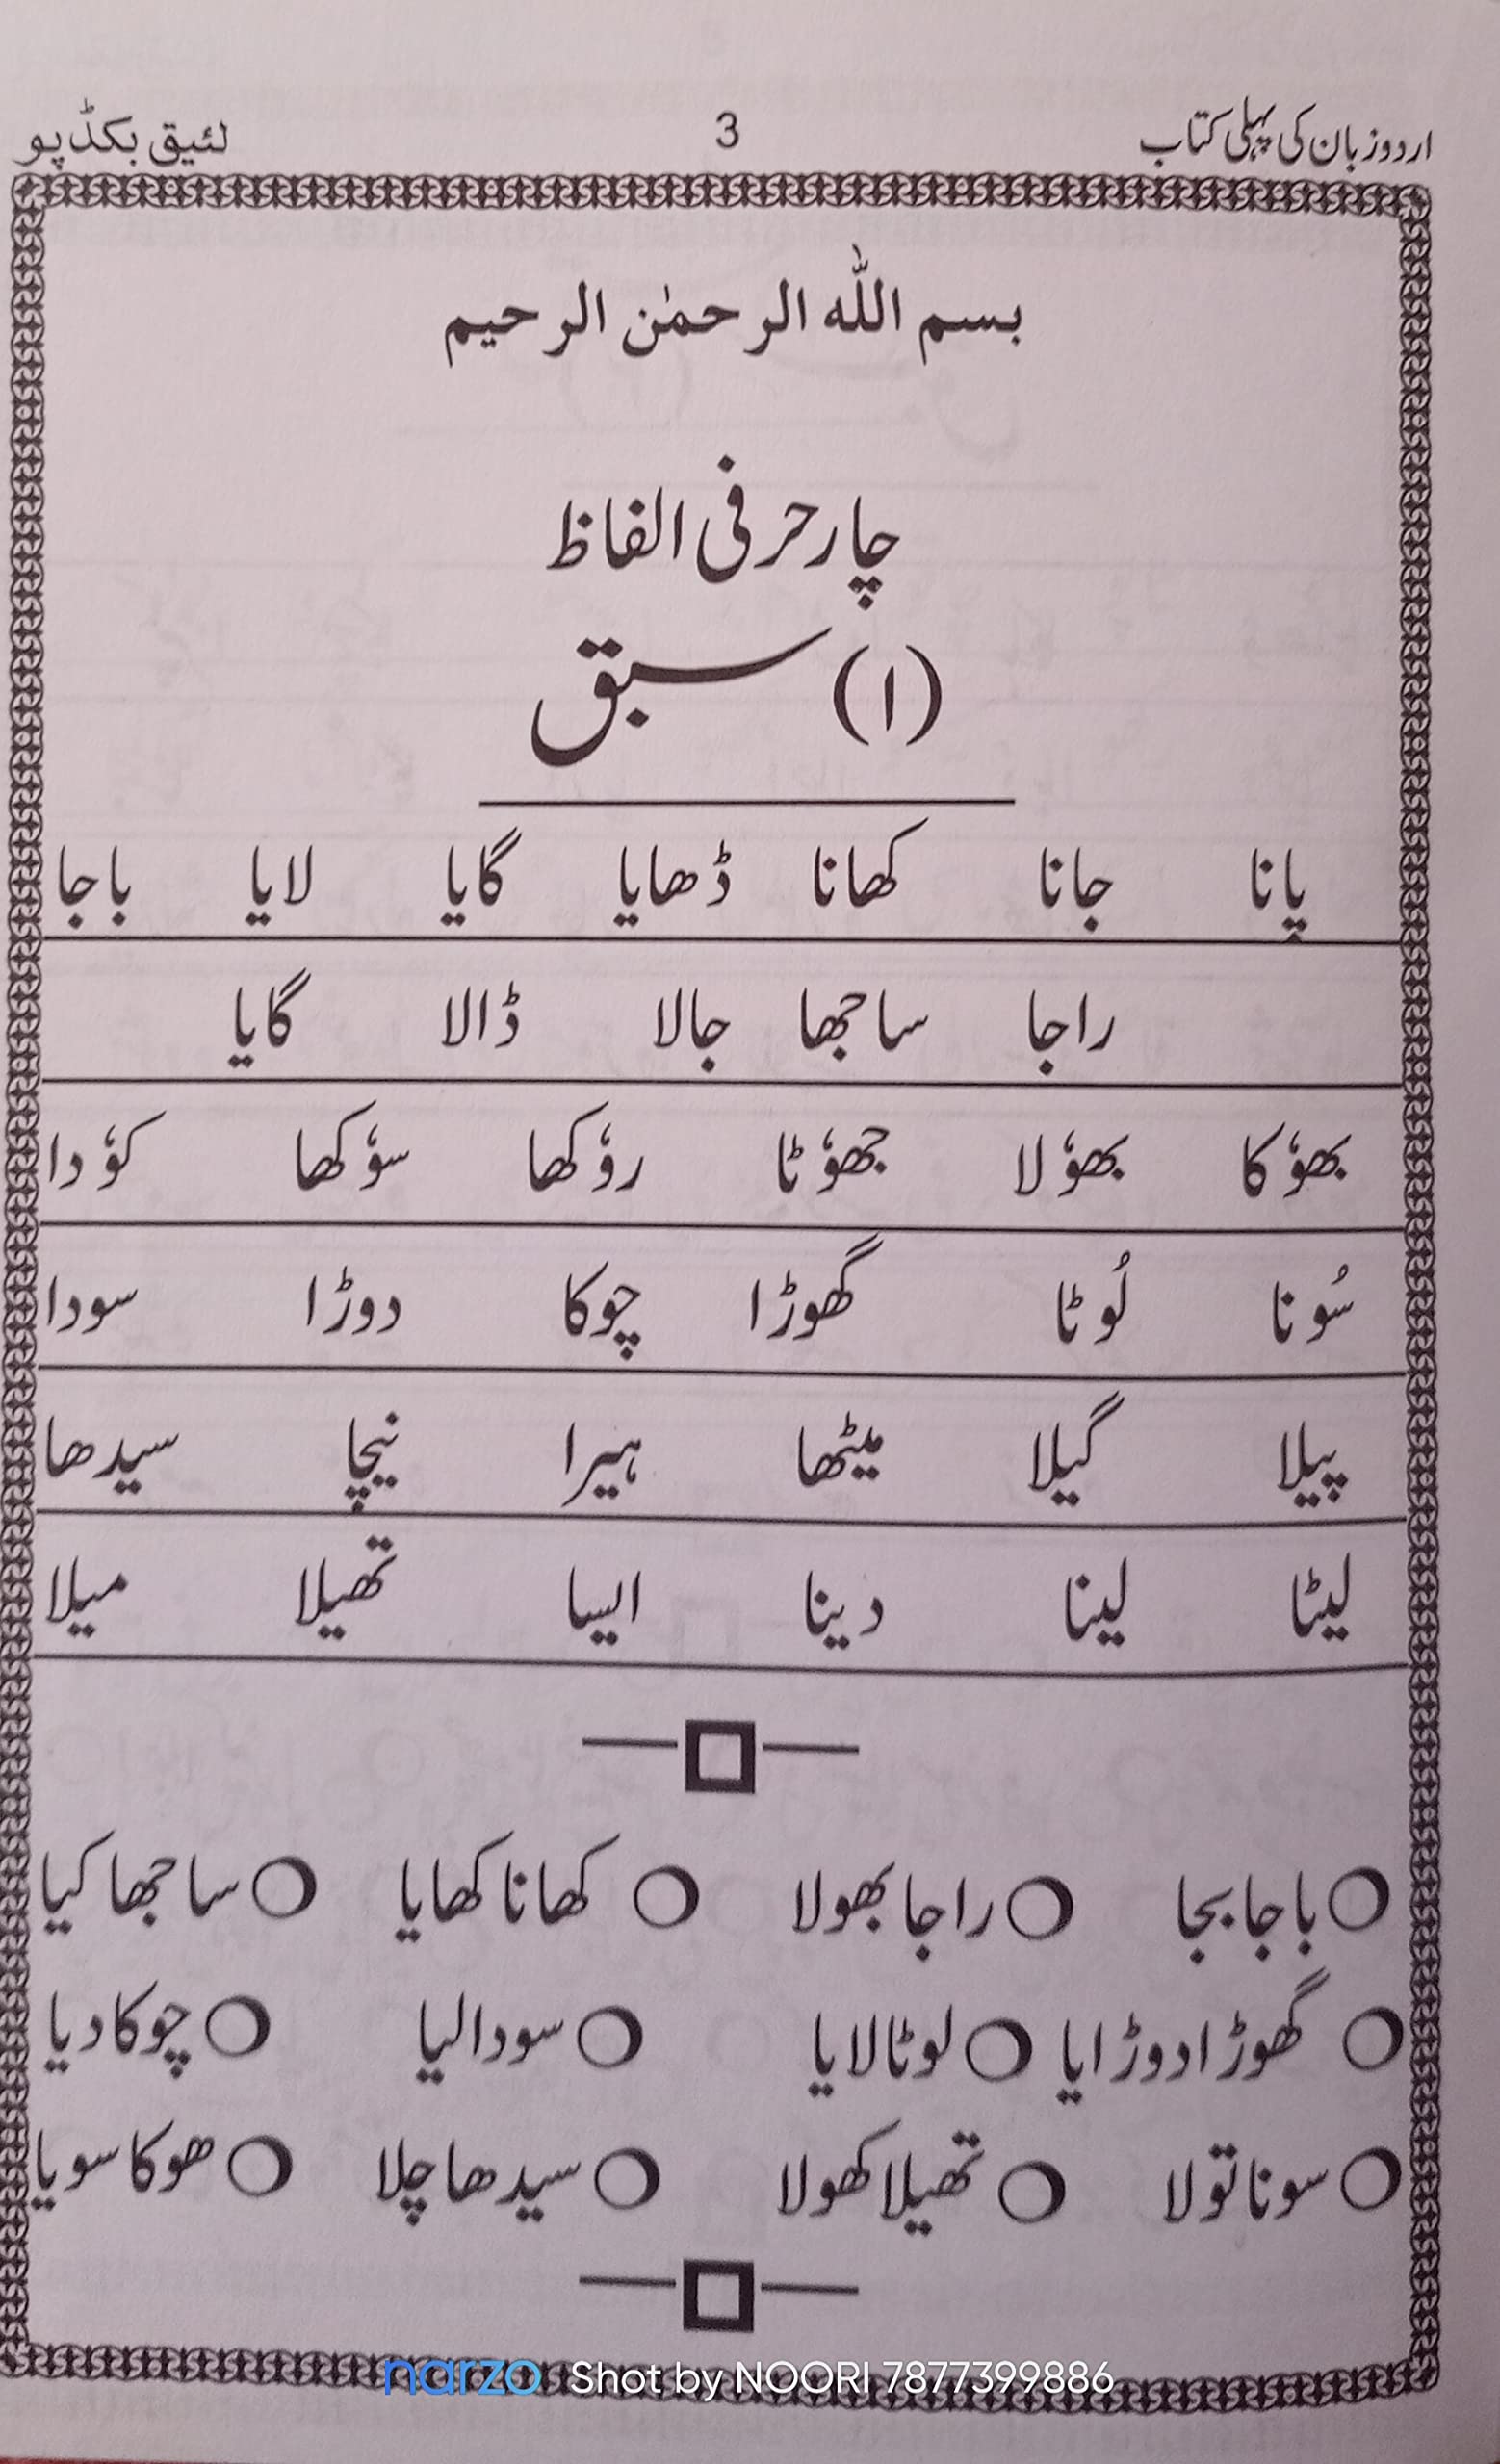 اردو زبان کی پہلی کتاب 3 لئیق بکڈپو
بسم اللّٰہ الرحمٰن الرحیم
چار حرفی الفاظ
(۱) سبق
پانا جانا کھانا ڈھایا گایا لایا باجا
راجا ساجھا جالا ڈالا گایا
بھوٗکا بھوٗلا جھوٗٹا روٗکھا سوٗکھا کوٗدا
سُونا لُوٹا گھوڑا چوکا دوڑا سودا
پیلا گیلا میٹھا ہیرا نیچا سیدھا
لیٹا لینا دینا ایسا تھیلا میلا
○ باجا بجا ○ راجا بھولا ○ کھانا کھایا ○ ساجھا کیا
○ گھوڑا دوڑایا ○ لوٹا لایا ○ سودا لیا ○ چوکا دیا
○ سونا تولا ○ تھیلا کھولا ○ سیدھا چلا ○ ھوکا سویا
narzo Shot by NOORI 7877399886